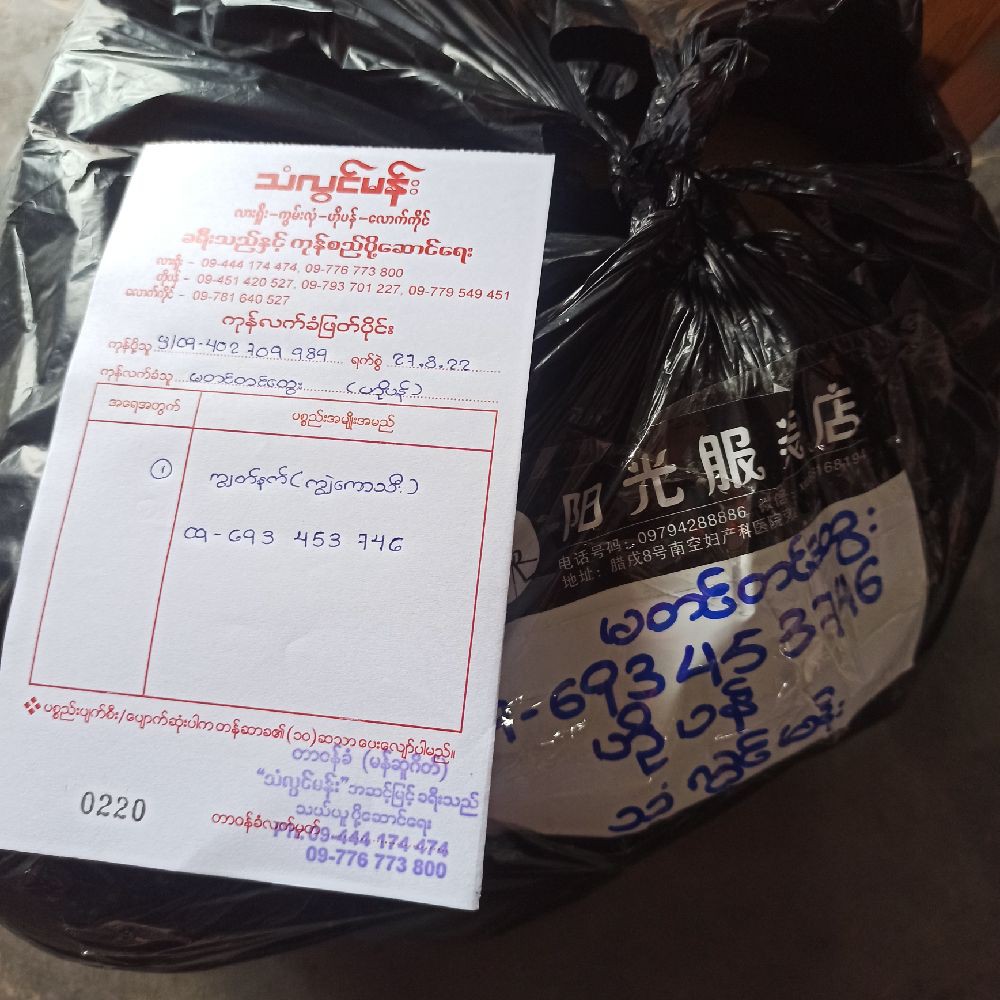 သံလွင်မန်း
လားရှိုး-ကွမ်းလုံ-ဟိုပန်-လောက်ကိုင်
ခရီးသည်နှင့် ကုန်စည်ပို့ဆောင်ရေး
လားရှိုး - 09-444 174 474, 09-776 773 800
ဟိုပန် - 09-451 420 527, 09-793 701 227, 09-779 549 451
လောက်ကိုင် - 09-781 640 527
ကုန်လက်ခံဖြတ်ပိုင်း
ကုန်ပို့သူ 09-402 709 989 ရက်စွဲ 27.8.22
ကုန်လက်ခံသူ မတင်တင်ထွေး (ဟိုပန်)
အရေအတွက် ပစ္စည်းအမျိုးအမည်
၁ ကျွတ်နက်(ကျွဲကောသီး)
09-693 453 746
ပစ္စည်းပျက်စီး/ပျောက်ဆုံးပါက တန်ဆာခ၏ (၁၀)ဆသာ ပေးလျော်ပါမည်။
တာဝန်ခံ (မန်ဆူဂိတ်)
"သံလွင်မန်း" အဆင့်မြင့် ခရီးသည်
သယ်ယူပို့ဆောင်ရေး
0220 တာဝန်ခံလက်မှတ်
Ph: 09-444 174 474
09-776 773 800
阳光服装店
电话号码: 09794288886 微信:
地址: 腊戌8号南空妇产科医院
မတင်တင်ထွေး
09-693 453 746
ဟိုပန်
သံလွင်မန်း